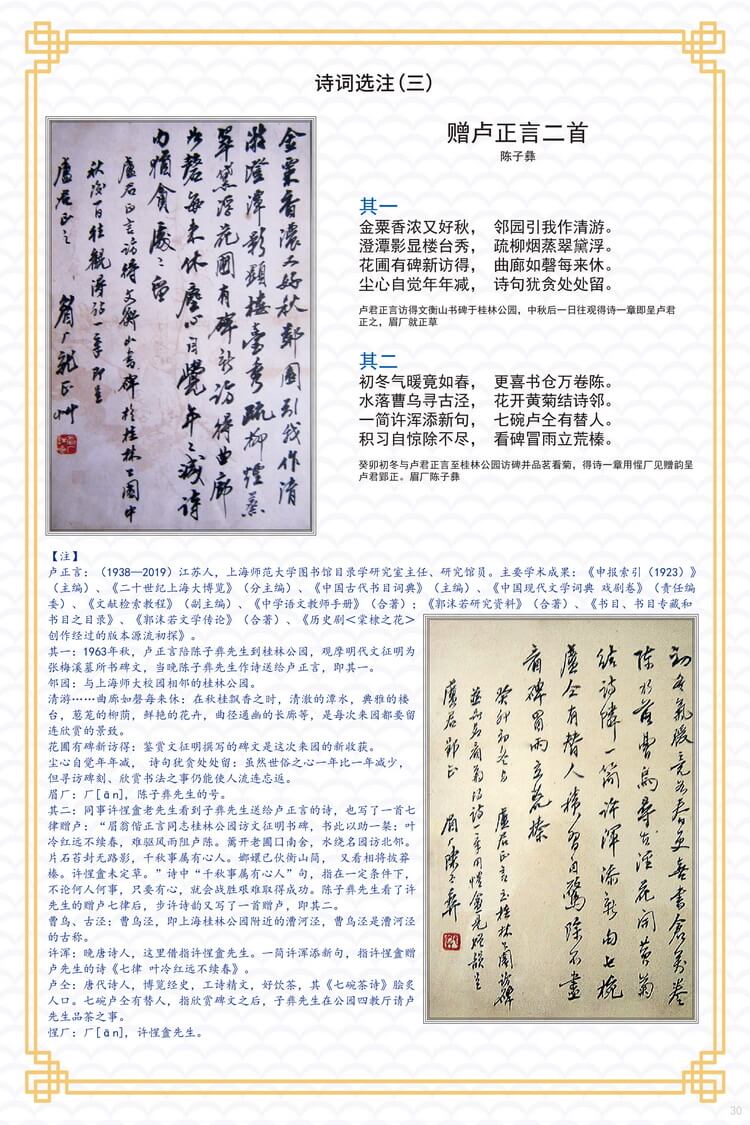 诗词选注(三)
金粟香浓又好秋邻园引我作清
游澄潭影显楼台秀疏柳烟蒸
翠黛浮花圃有碑新访得曲廊
如磬每来休尘心自觉年々减诗
句犹贪处々留
卢君正言访得文衡山书碑于桂林公园中
秋后一日往观得诗一章即呈
卢君正之 眉厂就正草
赠卢正言二首
陈子彝
其一
金粟香浓又好秋， 邻园引我作清游。
澄潭影显楼台秀， 疏柳烟蒸翠黛浮。
花圃有碑新访得， 曲廊如磬每来休。
尘心自觉年年减， 诗句犹贪处处留。
卢君正言访得文衡山书碑于桂林公园，中秋后一日往观得诗一章即呈卢君
正之，眉厂就正草
其二
初冬气暖竟如春， 更喜书仓万卷陈。
水落曹乌寻古泾， 花开黄菊结诗邻。
一简许浑添新句， 七碗卢仝有替人。
积习自惊除不尽， 看碑冒雨立荒榛。
癸卯初冬与卢君正言至桂林公园访碑并品茗看菊，得诗一章用惺厂见赠韵呈
卢君郢正。眉厂陈子彝
【注】
卢正言：（1938—2019）江苏人，上海师范大学图书馆目录学研究室主任、研究馆员。主要学术成果：《申报索引（1923）》
（主编）、《二十世纪上海大博览》（分主编）、《中国古代书目词典》（主编）、《中国现代文学词典 戏剧卷》（责任编
委）、《文献检索教程》（副主编）、《中学语文教师手册》（合著）；《郭沫若研究资料》（合著）、《书目、书目专藏和
书目之目录》、《郭沫若文学传论》（合著）、《历史剧<棠棣之花>
创作经过的版本源流初探》。
其一：1963年秋，卢正言陪陈子彝先生到桂林公园，观摩明代文征明为
张梅溪墓所书碑文，当晚陈子彝先生作诗送给卢正言，即其一。
邻园：与上海师大校园相邻的桂林公园。
清游……曲廊如磬每来休：在秋桂飘香之时，清澈的潭水，典雅的楼
台，葱茏的柳荫，鲜艳的花卉，曲径通幽的长廊等，是每次来园都要留
连欣赏的景致。
花圃有碑新访得：鉴赏文征明撰写的碑文是这次来园的新收获。
尘心自觉年年减， 诗句犹贪处处留：虽然世俗之心一年比一年减少，
但寻访碑刻、欣赏书法之事仍能使人流连忘返。
眉厂：厂[ān]，陈子彝先生的号。
其二：同事许惺盦老先生看到子彝先生送给卢正言的诗，也写了一首七
律赠卢：“眉翁偕正言同志桂林公园访文征明书碑，书此以助一粲：叶
冷红远不续春，难驱风雨阻卢陈。篱开老圃口南舍，水绕名园访北邻。
片石苔封无路影，千秋事属有心人。螂螺已伏衡山简， 又看相将拔莽
榛。许惺盦未定草。”诗中“千秋事属有心人”句，指在一定条件下，
不论何人何事，只要有心，就会战胜艰难取得成功。陈子彝先生看了许
先生的赠卢七律后，步许诗韵又写了一首赠卢，即其二。
曹乌、古泾：曹乌泾，即上海桂林公园附近的漕河泾，曹乌泾是漕河泾
的古称。
许浑：晚唐诗人，这里借指许惺盦先生。一简许浑添新句，指许惺盦赠
卢先生的诗《七律 叶冷红远不续春》。
卢仝：唐代诗人，博览经史，工诗精文，好饮茶，其《七碗茶诗》脍炙
人口。七碗卢仝有替人，指欣赏碑文之后，子彝先生在公园四教厅请卢
先生品茶之事。
惺厂：厂[ān]，许惺盦先生。
初冬气暖竟如春更喜书仓万卷
陈水落曹乌寻古泾花开黄菊
结诗隣一简许浑添新句七碗
卢仝有替人积习自惊除不尽
看碑冒雨立荒榛
癸卯初冬与 卢君正言至桂林公园访碑
并品茗看菊得诗一章用惺盦见赠韵呈
卢君郢正 眉厂陈子彝
30